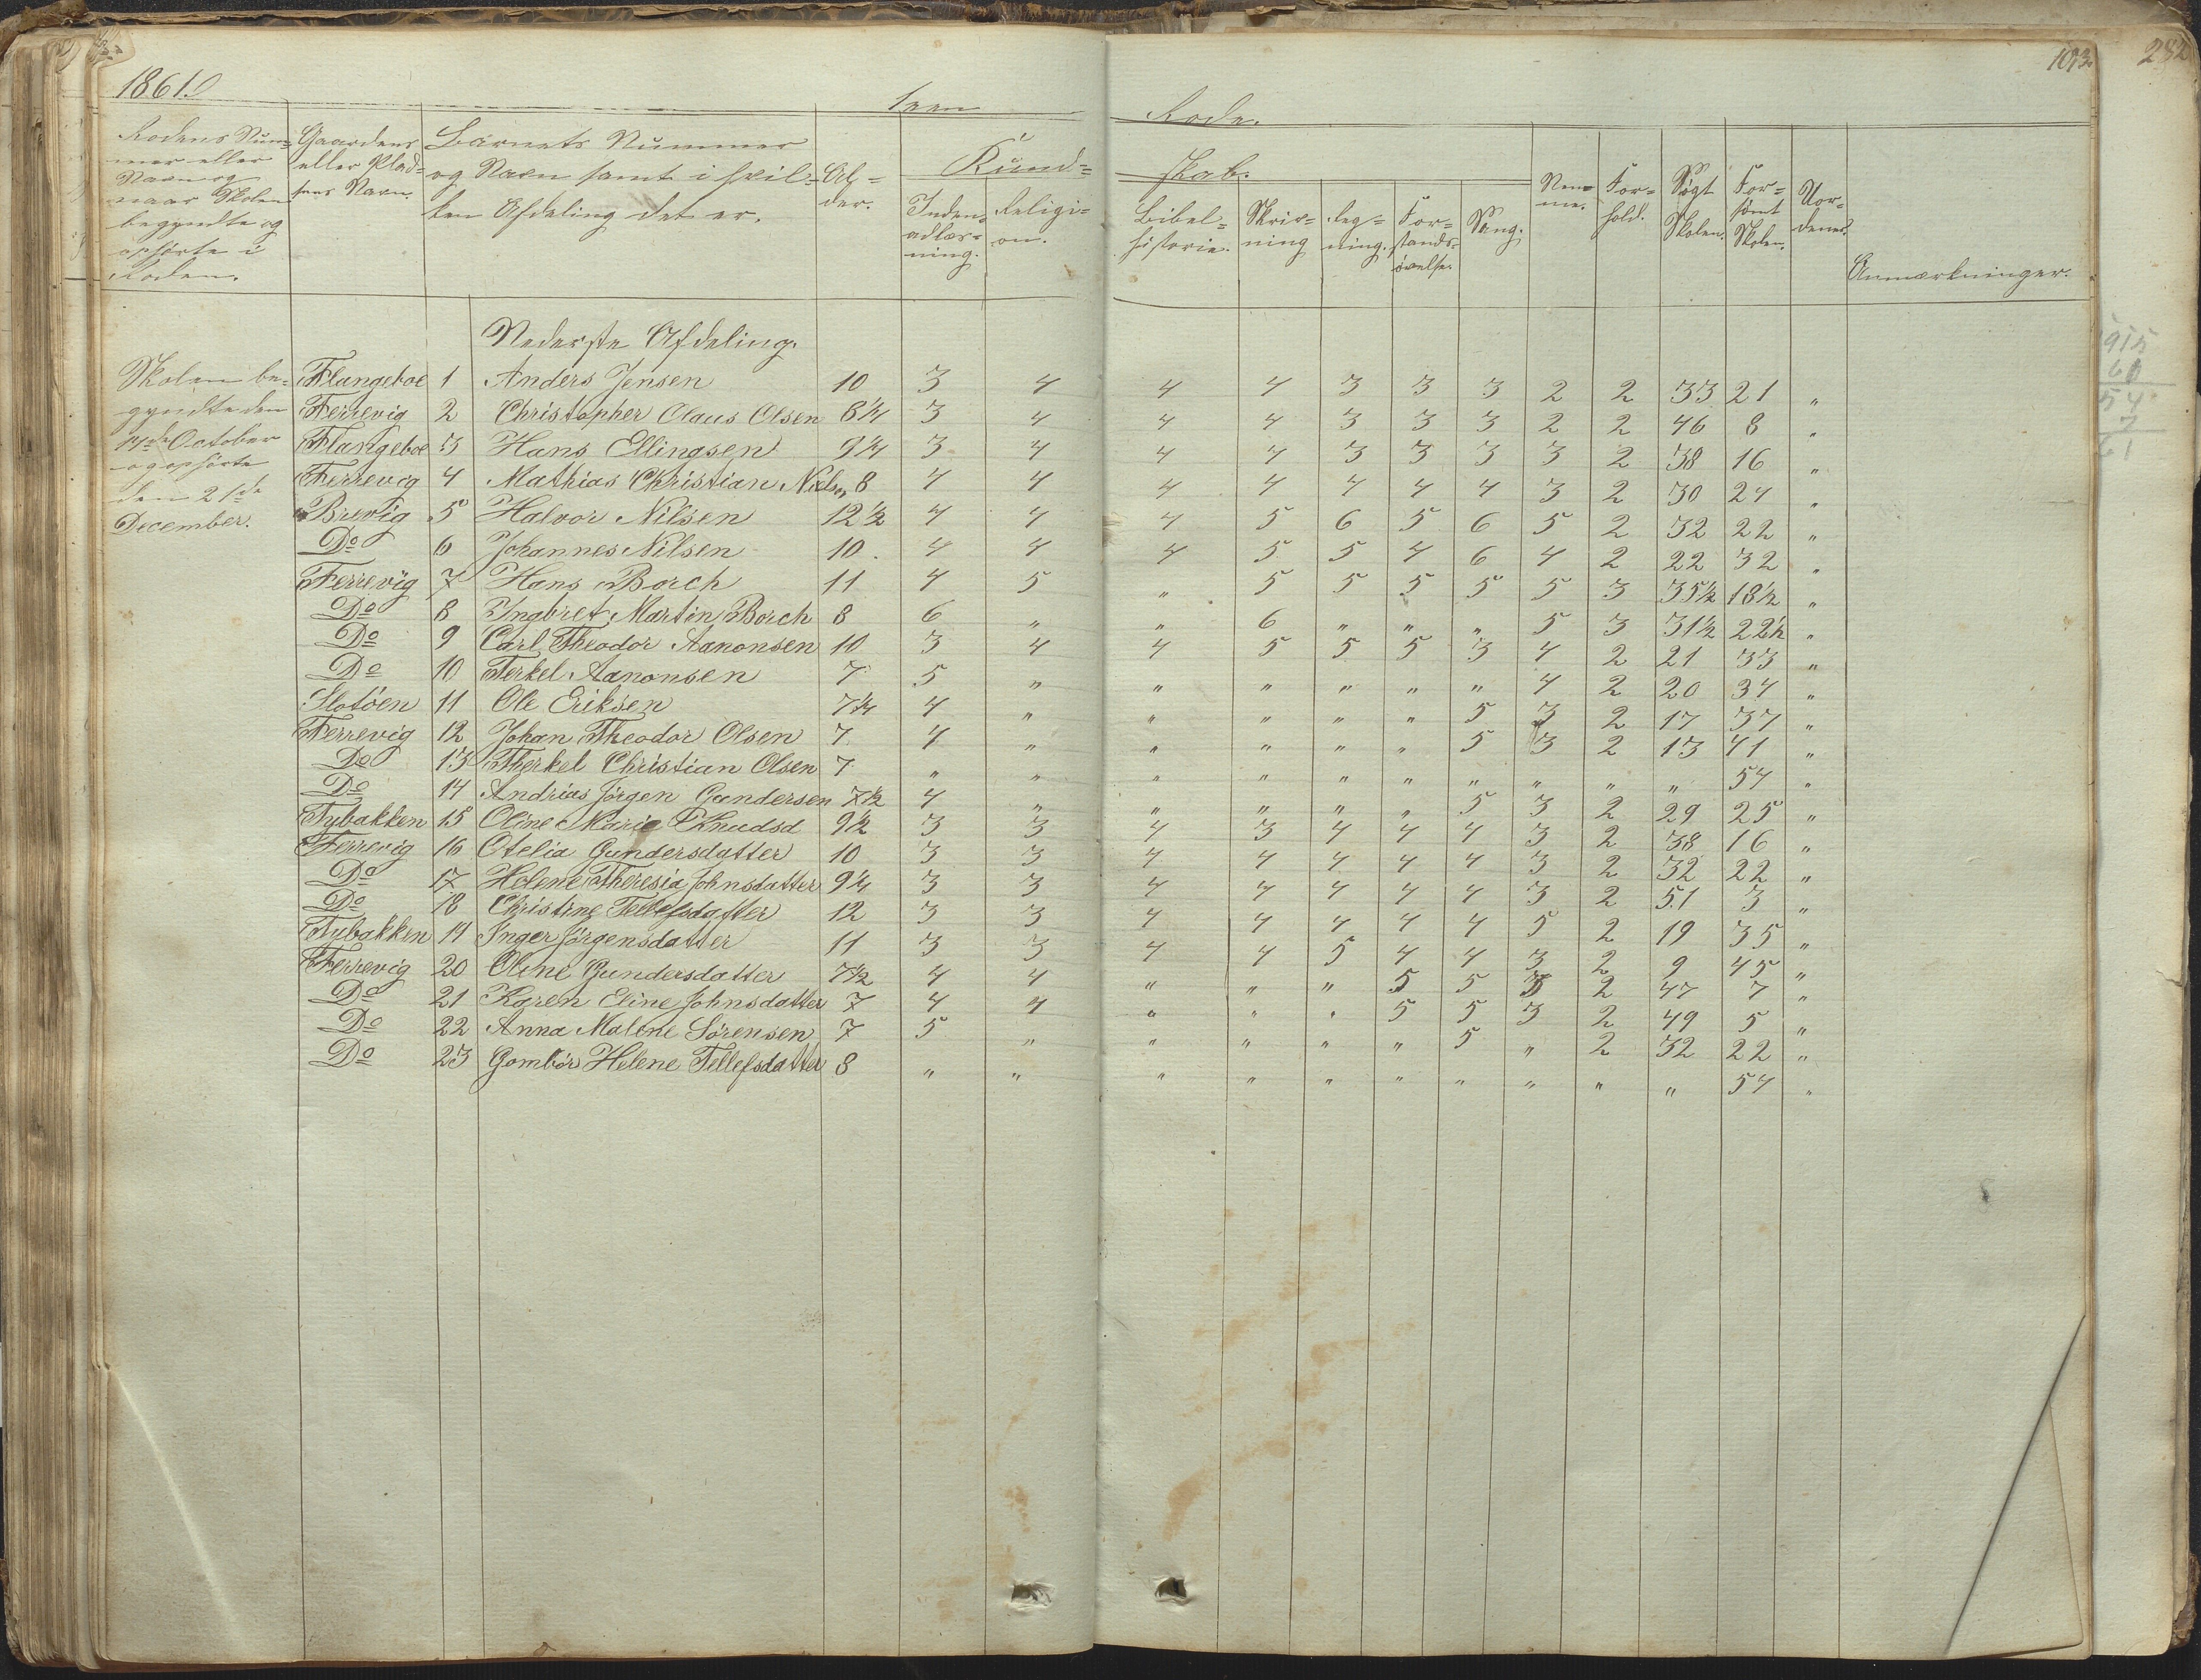 1861.
1ste Rode.
103. 282
Rodens Num=
mer eller
Navn og
naar Skolen
begyndte og
ophørte i
Roden.
Gaardens
eller Plad=
sens Navn.
Barnets Nummer
og Navn samt i hvil=
ken Afdeling det er.
Al=
der.
Kund=
skab.
Inden=
adlæs=
ning.
Religi=
on.
Bibel=
historie.
Skriv=
ning
Reg=
ning.
For=
stands=
øvelse.
Sang.
Nem=
me.
For=
hold.
Søgt
Skolen.
For=
sømt
Skolen.
Uor=
dener.
Anmærkninger.
Nederste Afdeling.
Skolen be=
gyndte den
14de October
og ophørte
den 21de
December.
Flangeboe 1 Anders Jensen 10 3 4 4 4 3 3 3 2 2 33 21 "
Ferrevig 2 Christopher Olaus Olsen 8¼ 3 4 4 4 3 3 3 2 2 46 8 "
Flangeboe 3 Hans Ellingsen 9¼ 3 4 4 4 3 3 3 3 2 38 16 "
Ferrevig 4 Mathias Christian Nielsen 8 4 4 4 4 4 4 4 3 2 30 24 "
Brevig 5 Halvor Nilsen 12½ 4 4 4 5 6 5 6 5 2 32 22 "
Do 6 Johannes Nilsen 10 4 4 4 5 5 4 6 4 2 22 32 "
Ferrevig 7 Hans Borch 11 4 5 " 5 5 5 5 5 3 35½ 18½ "
Do 8 Ingbret Martin Borch 8 6 " " 6 " " " 5 3 31½ 22½ "
Do 9 Carl Theodor Aanonsen 10 3 4 4 5 5 5 3 4 2 21 33 "
Do 10 Terkel Aanonsen 7 5 " " " " " " 4 2 20 34 "
Slotöen 11 Ole Eriksen 7¼ 4 " " " " " 5 3 2 17 37 "
Ferrevig 12 Johan Theodor Olsen 7 4 " " " " " 5 3 2 13 41 "
Do 13 Therkel Christian Olsen 7 " " " " " " " " " " 54 "
Do 14 Andrias Jörgen Gundersen 7½ 4 " " " " " 5 3 2 29 25 "
Tybakken 15 Oline Marie Knudsd 9½ 3 3 4 3 4 4 4 3 2 38 16 "
Ferrevig 16 Otelia Gundersdatter 10 3 3 4 4 4 4 4 3 2 32 22 "
Do 17 Helene Theresia Johnsdatter 9¼ 3 3 4 4 4 4 4 3 2 51 3 "
Do 18 Christine Tellefsdatter 12 3 3 4 4 4 4 4 5 2 19 35 "
Tybakken 19 Inger Jörgensdatter 11 3 3 4 4 5 4 4 3 2 9 45 "
Ferrevig 20 Oline Gundersdatter 7½ 4 4 " " " 5 5 3 2 47 7 "
Do 21 Karen Eline Johnsdatter 7 4 4 " " " 5 5 3 2 49 5 "
Do 22 Anna Malene Sörensen 7 5 " " " " " 5 " 2 32 22 "
Do 23 Gombör Helene Tellefsdatter 8 " " " " " " " " " " 54 "